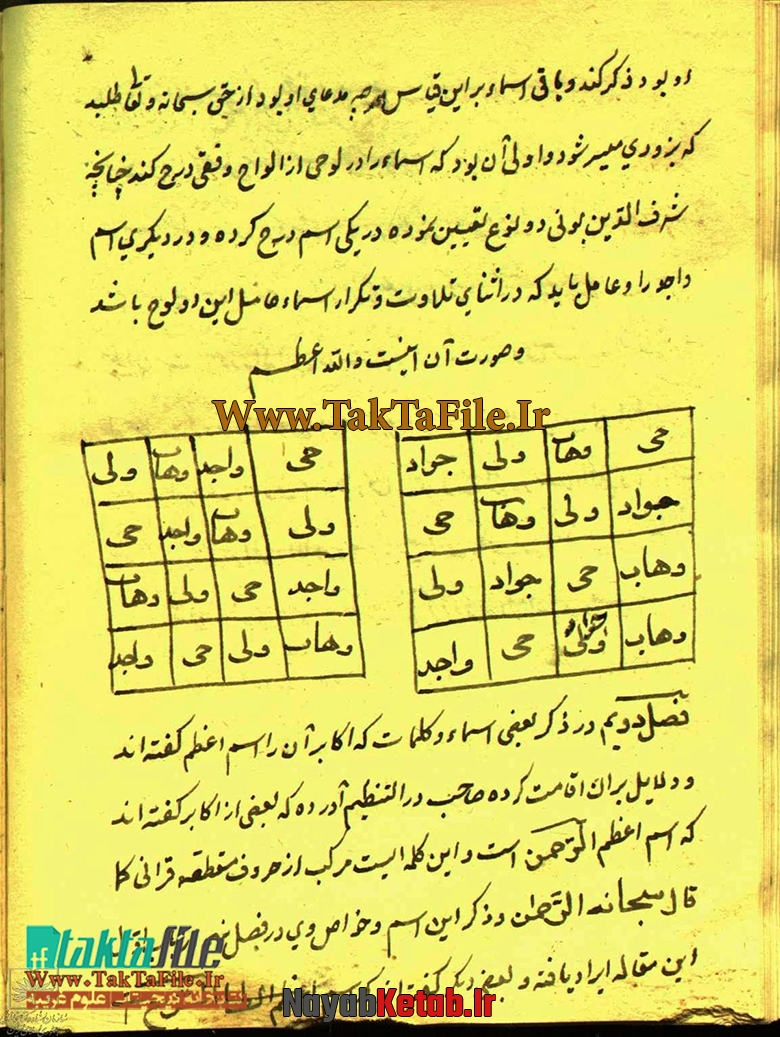 او بود ذکر کند و باقی اسماء بر این قیاس هر چه مدعای او بود از حق سبحانه و تعالی طلبد
که بزودی میسر شود و اولی آن بود که اسماء را در لوحی از الواح وفقی درج کند چنانچه
شرف الدین بونی دو نوع تعیین نموده در یکی اسم درج کرده و در دیگری اسم
واجد را و عامل باید که در اثنای تلاوت و تکرار اسماء حامل این دو لوح باشد
و صورت آن اینست والله اعلم
Www.TakTaFile.Ir
حی وهاب ولی جواد
جواد ولی وهاب حی
وهاب حی جواد ولی
وهاب ولی جواد حی واجد
حی واجد وهاب ولی
ولی وهاب واجد حی
واجد حی ولی وهاب
وهاب ولی حی واجد
فصل دویم در ذکر بعضی اسماء و کلمات که اکابر آن را اسم اعظم گفته اند
و دلایل بران اقامت کرده صاحب در التنظیم آورده که بعضی از اکابر گفته اند
که اسم اعظم الرحمن است و این کلمه ایست مرکب از حروف مقطعه قرانی کما
قال سبحانه الرحمن و ذکر این اسم و خواص وی در فصل
این مقاله ایراد یافته و بعضی دیگر گفته اند که
taktafile
Www.TakTaFile.Ir
NayabKetab.Ir